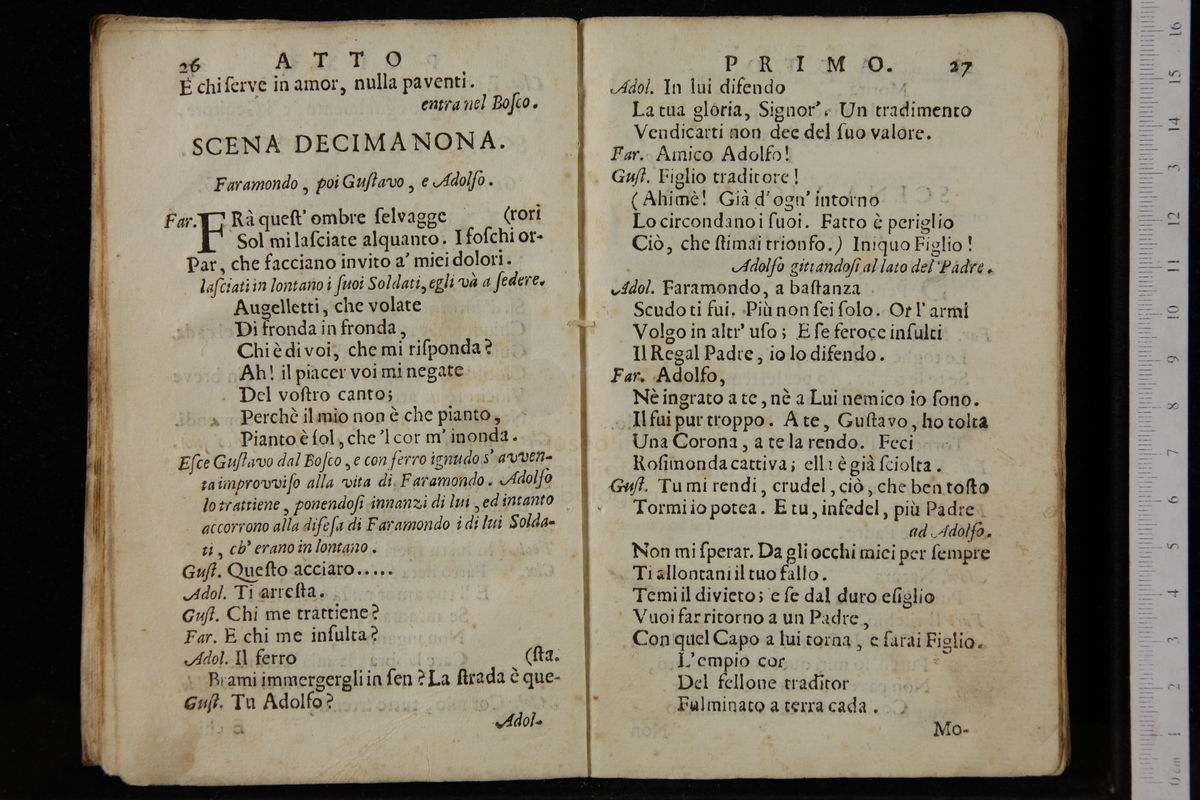 26 ATTO
E chi ſerve in amor, nulla paventi.
entra nel Boſco.
SCENA DECIMANONA.
Faramondo, poi Guſtavo, e Adolfo.
Far. FRà queſt' ombre ſelvagge (rori
Sol mi laſciate alquanto. I foſchi or-
Par, che facciano invito a' miei dolori.
laſciati in lontano i ſuoi Soldati, egli và a ſedere.
Augelletti, che volate
Di fronda in fronda,
Chi è di voi, che mi riſponda?
Ah! il piacer voi mi negate
Del voſtro canto;
Perchè il mio non è che pianto,
Pianto è ſol, che 'l cor m' inonda.
Eſce Guſtavo dal Boſco, e con ferro ignudo s' avven-
ta improvviſo alla vita di Faramondo. Adolfo
lo trattiene, ponendoſi innanzi di lui, ed intanto
accorrono alla difeſa di Faramondo i di lui Solda-
ti, ch' erano in lontano.
Guſt. Queſto acciaro.....
Adol. Ti arreſta.
Guſt. Chi me trattiene?
Far. E chi me inſulta?
Adol. Il ferro (ſta.
Brami immergergli in ſen? La ſtrada è que-
Guſt. Tu Adolfo?
Adol-
PRIMO. 27
Adol. In lui difendo
La tua gloria, Signor'. Un tradimento
Vendicarti non dee del ſuo valore.
Far. Amico Adolfo!
Guſt. Figlio traditore!
(Ahimè! Già d' ogn' intorno
Lo circondano i ſuoi. Fatto è periglio
Ciò, che ſtimai trionfo.) Iniquo Figlio!
Adolfo gittandoſi al lato del Padre.
Adol. Faramondo, a baſtanza
Scudo ti fui. Più non ſei ſolo. Or l' armi
Volgo in altr' uſo; E ſe feroce inſulti
Il Regal Padre, io lo difendo.
Far. Adolfo,
Nè ingrato a te, nè a Lui nemico io ſono.
Il fui pur troppo. A te, Guſtavo, ho tolta
Una Corona, a te la rendo. Feci
Roſimonda cattiva; ella è già ſciolta.
Guſt. Tu mi rendi, crudel, ciò, che ben toſto
Tormi io potea. E tu, infedel, più Padre
ad Adolfo.
Non mi ſperar. Da gli occhi miei per ſempre
Ti allontani il tuo fallo.
Temi il divieto; e ſe dal duro eſiglio
Vuoi far ritorno a un Padre,
Con quel Capo a lui torna, e ſarai Figlio.
L' empio cor
Del fellone traditor
Fulminato a terra cada.
Mo-